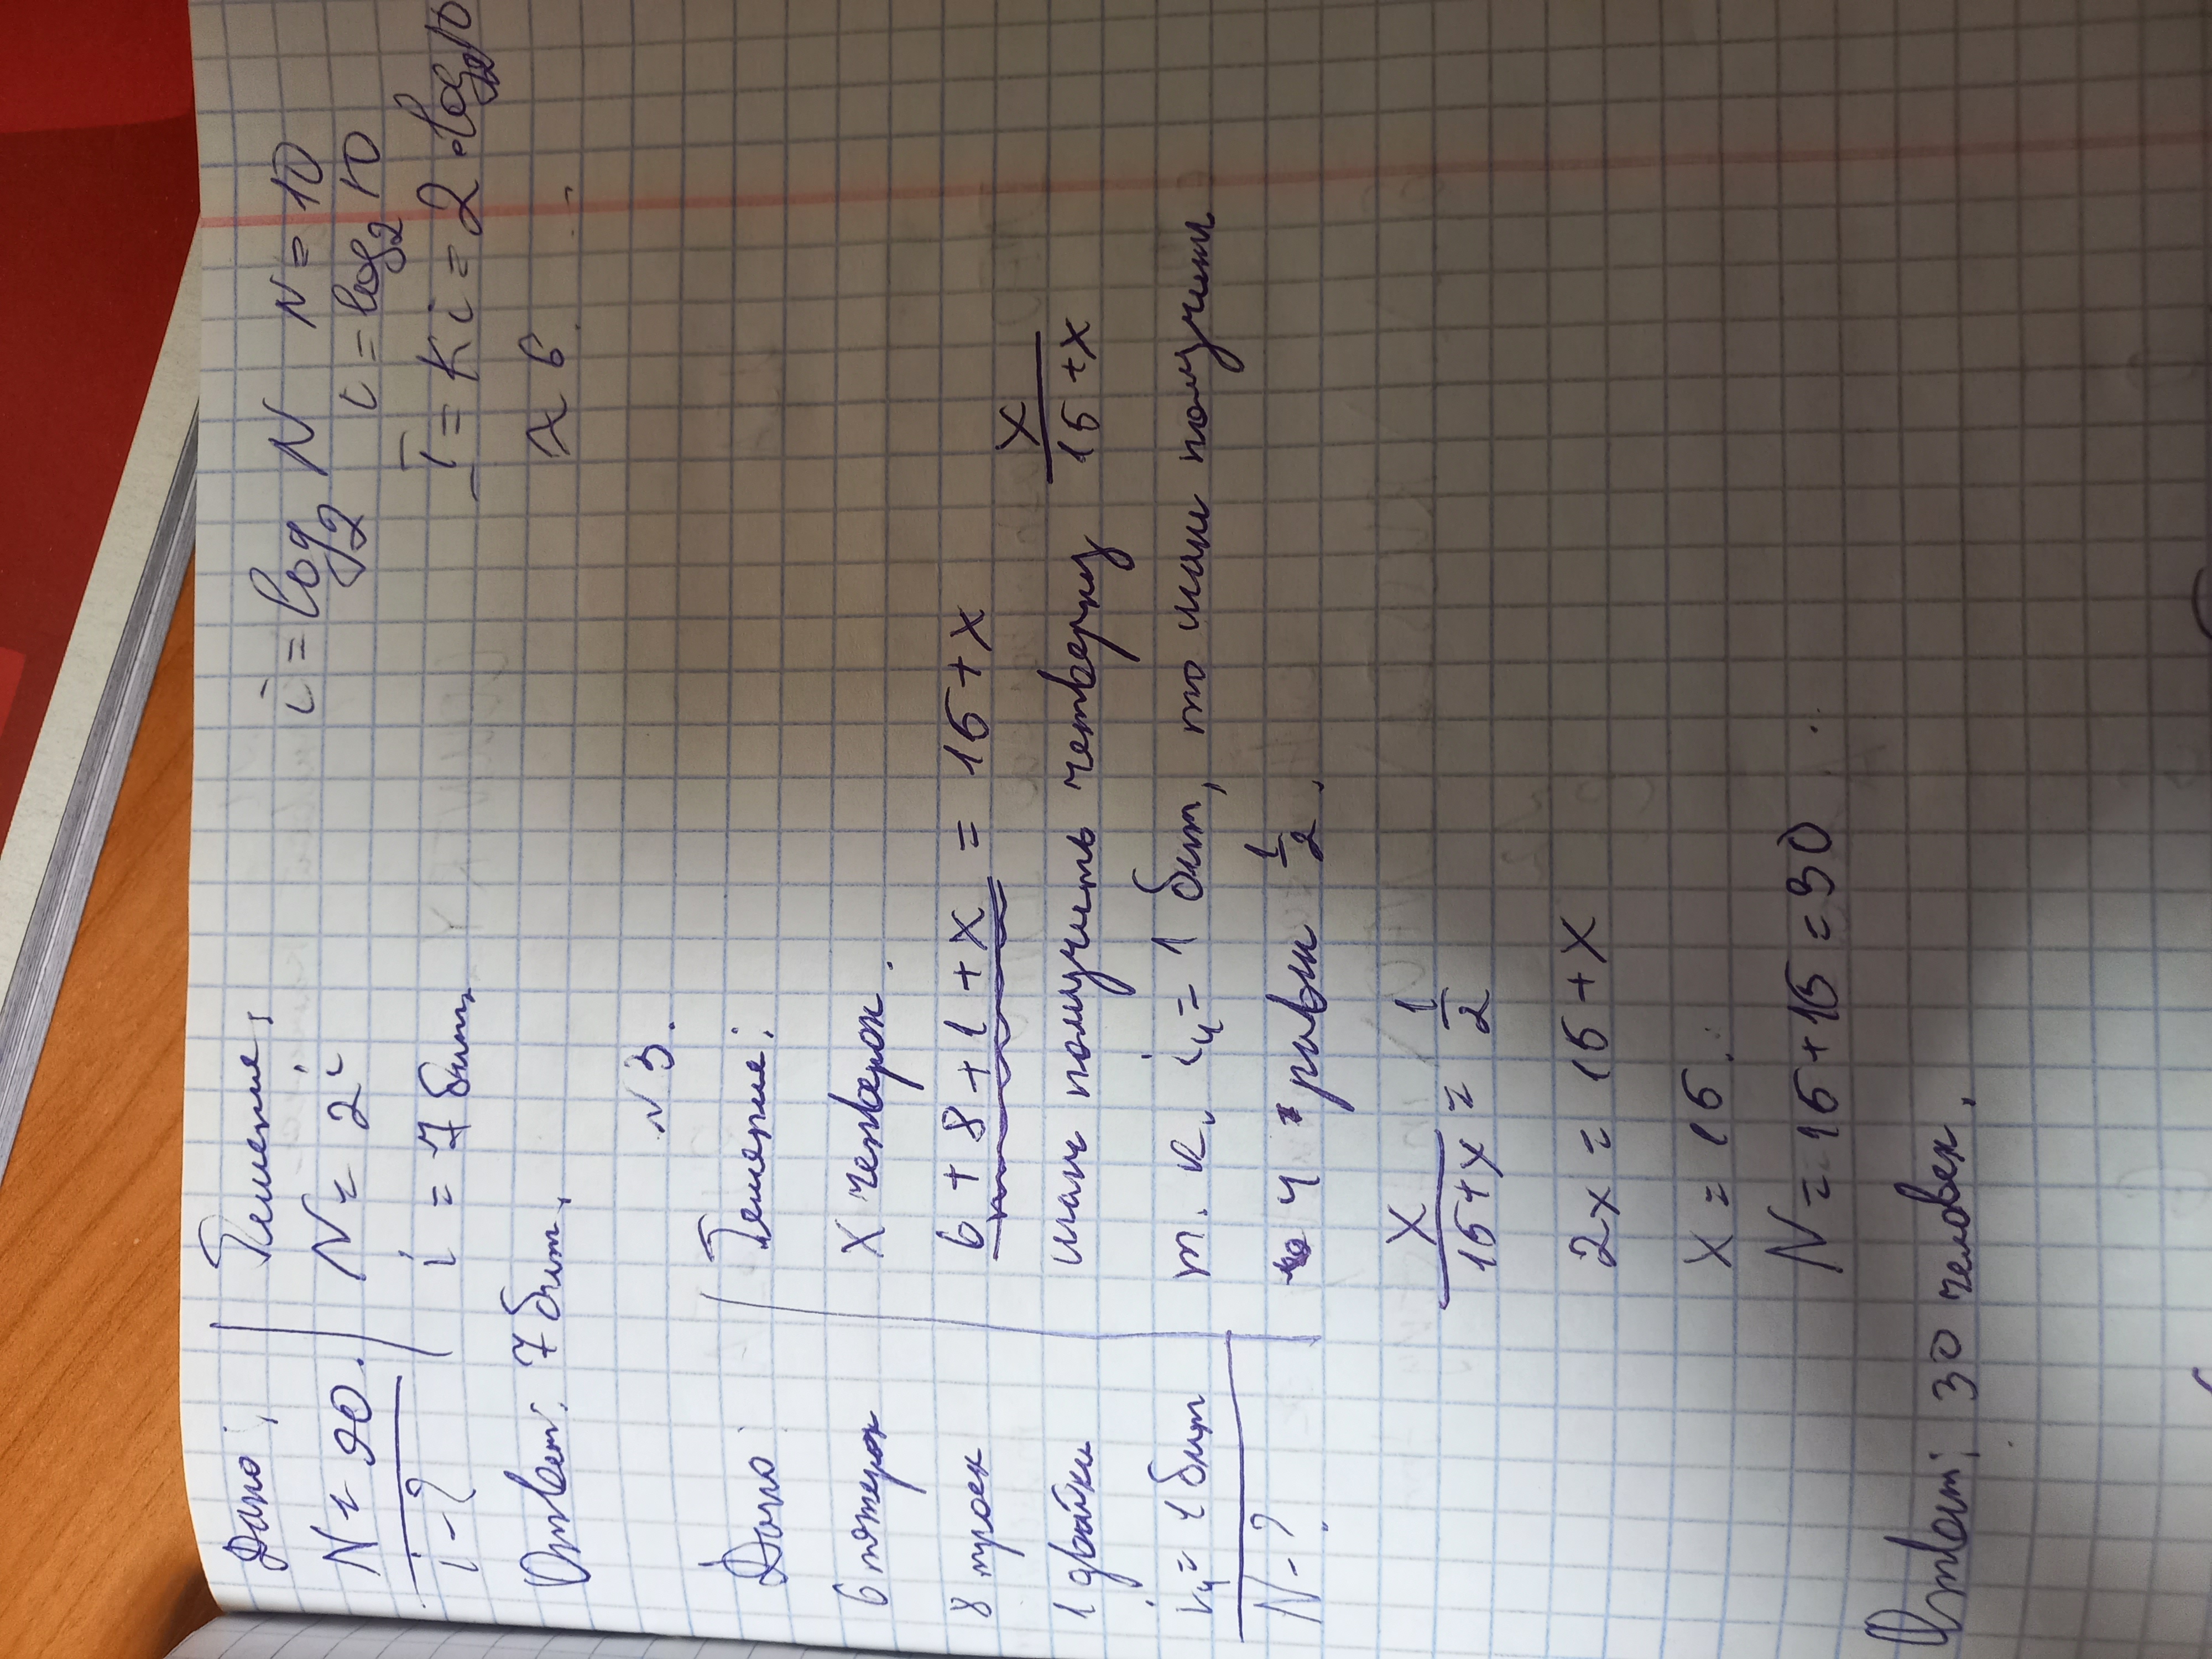 Дано:
N = 90.
i - ?
Решение:
N = 2^i
i = 7 бит.
Ответ: 7 бит.
i = log₂ N N = 10
i = log₂ 10
I = Ki = 2 · log₂ 10
≈ 6.
№ 3.
Дано:
6 пятерок
8 троек
1 двойки
i₄ = 1 бит
N - ?
Решение:
X четверок.
6 + 8 + 1 + x = 15 + x
шанс получить четверку x/(15 + x)
т. к. i₄ = 1 бит, то шанс получить
4 равен 1/2.
x/(15 + x) = 1/2
2x = 15 + x
x = 15.
N = 15 + 15 = 30
Ответ: 30 человек.